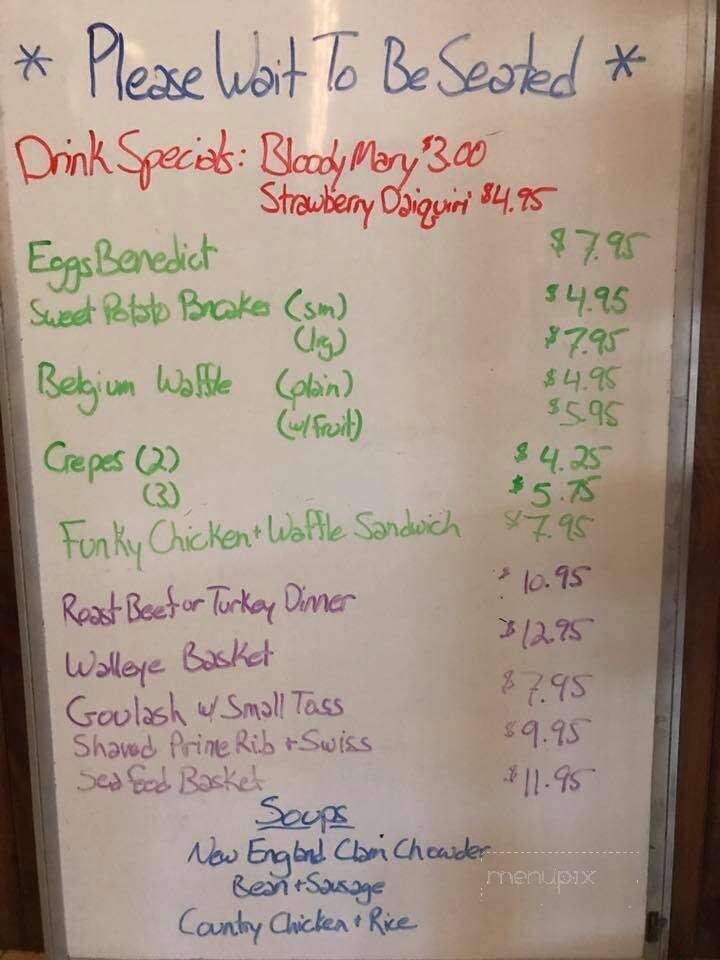 * Please Wait To Be Seated *
Drink Specials: Bloody Mary $3.00
Strawberry Daiquiri $4.95
Eggs Benedict $7.95
Sweet Potato Pancakes (sm) $4.95
(lrg) $7.95
Belgium Waffle (plain) $4.95
(w/Fruit) $5.95
Crepes (2) $4.25
(3) $5.75
Funky Chicken + Waffle Sandwich $7.95
Roast Beef or Turkey Dinner $10.95
Walleye Basket $12.95
Goulash w/ Small Toss $7.95
Shaved Prime Rib + Swiss $9.95
Seafood Basket $11.95
Soups
New England Clam Chowder
Bean + Sausage
Country Chicken + Rice
menupix